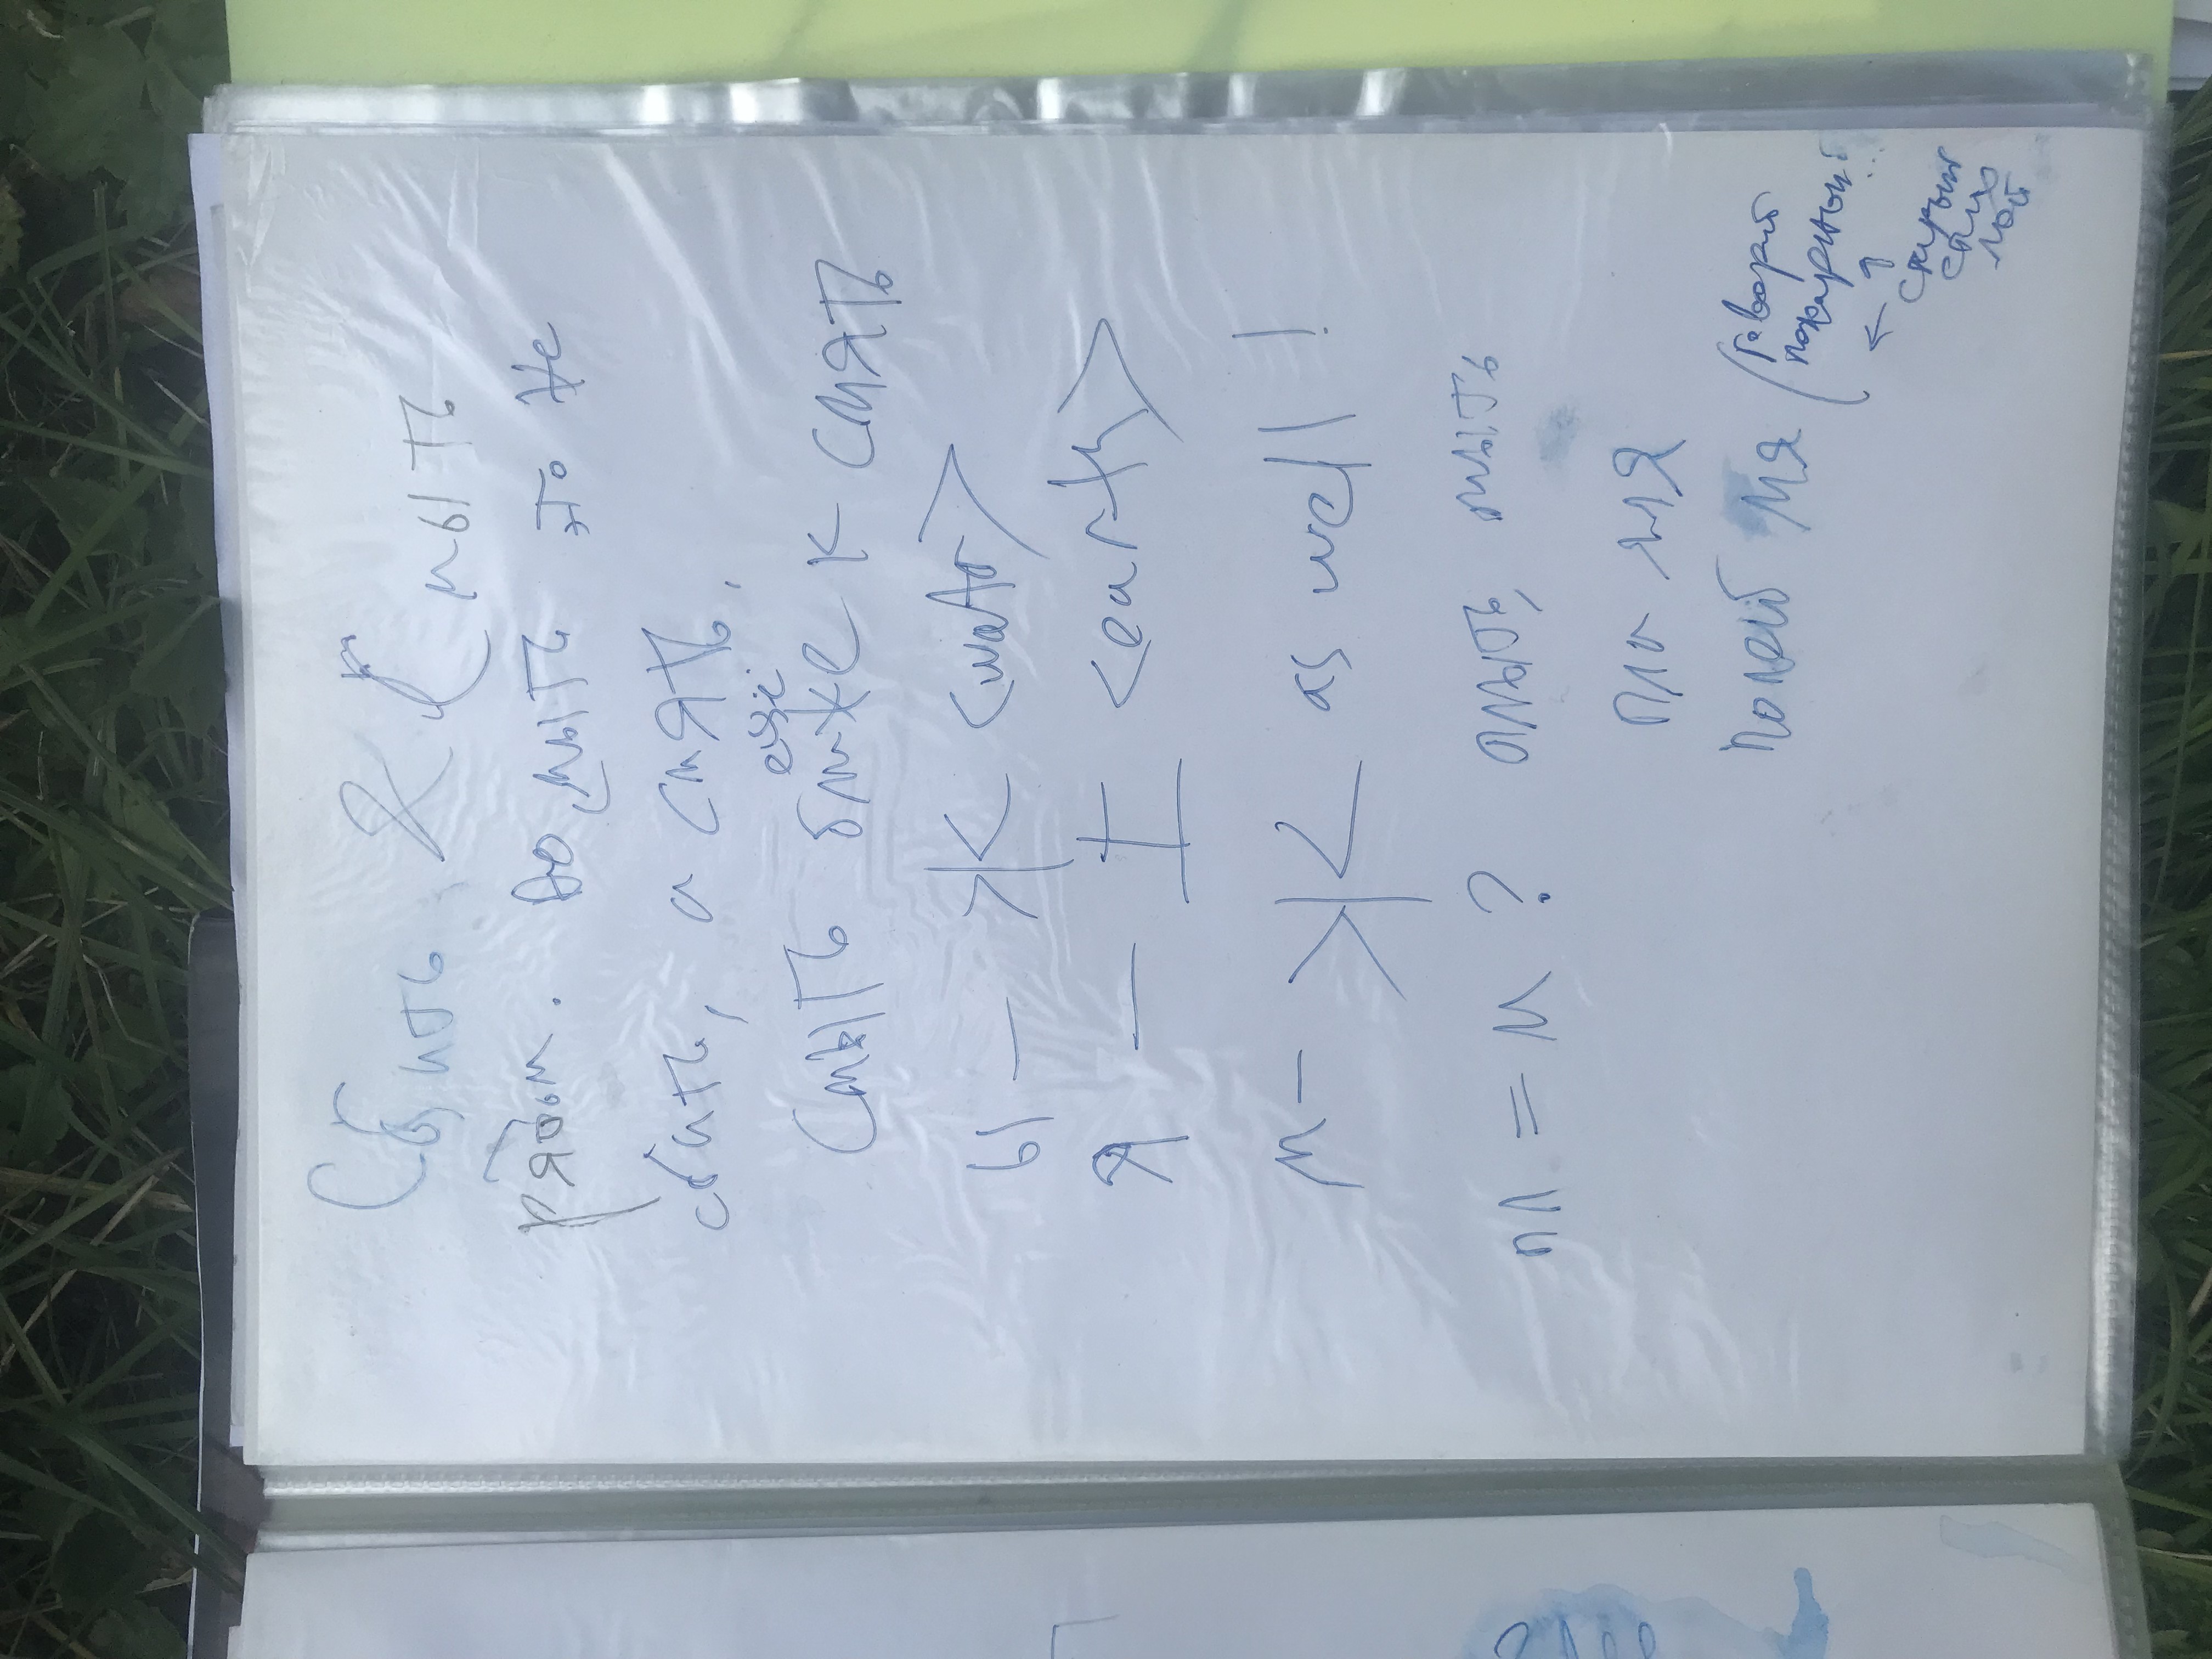 Сбить & Смыть
рядом. Но смыть это не
сбить, а смять.
ещё
Смыть ближе к смять
ы — 水 <water>
я — 土 <earth>
м — 水 as well!
пл = м ? плыть, мыть
пла мя
полей мя (говорит
пожарный
← ↑
старый
стих
мой